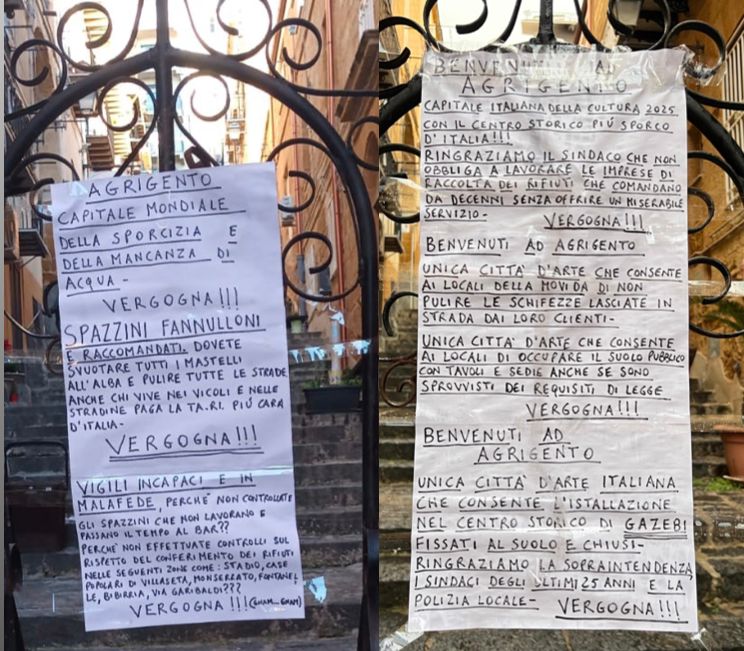 AGRIGENTO
CAPITALE MONDIALE
DELLA SPORCIZIA E
DELLA MANCANZA DI
ACQUA -
VERGOGNA!!!
SPAZZINI FANNULLONI
E RACCOMANDATI. DOVETE
SVUOTARE TUTTI I MASTELLI
ALL'ALBA E PULIRE TUTTE LE STRADE
ANCHE CHI VIVE NEI VICOLI E NELLE
STRADINE PAGA LA TA.RI. PIÚ CARA
D'ITALIA -
VERGOGNA!!!
VIGILI INCAPACI E IN
MALAFEDE, PERCHÉ NON CONTROLLATE
GLI SPAZZINI CHE NON LAVORANO E
PASSANO IL TEMPO AL BAR??
PERCHÉ NON EFFETTUATE CONTROLLI SUL
RISPETTO DEL CONFERIMENTO DEI RIFIUTI
NELLE SEGUENTI ZONE COME: STADIO, CASE
POPOLARI DI VILLASETA, MONSERRATO, FONTANEL
LE, BIBIRRIA, VIA GARIBALDI???
VERGOGNA!!! (GNAM_GNAM)
BENVENUTI AD
AGRIGENTO
CAPITALE ITALIANA DELLA CULTURA 2025
CON IL CENTRO STORICO PIÚ SPORCO
D'ITALIA!!!
RINGRAZIAMO IL SINDACO CHE NON
OBBLIGA A LAVORARE LE IMPRESE DI
RACCOLTA DEI RIFIUTI CHE COMANDANO
DA DECENNI SENZA OFFRIRE UN MISERABILE
SERVIZIO -
VERGOGNA!!!
BENVENUTI AD AGRIGENTO
UNICA CITTÀ D'ARTE CHE CONSENTE
AI LOCALI DELLA MOVIDA DI NON
PULIRE LE SCHIFEZZE LASCIATE IN
STRADA DAI LORO CLIENTI -
UNICA CITTÀ D'ARTE CHE CONSENTE
AI LOCALI DI OCCUPARE IL SUOLO PUBBLICO
CON TAVOLI E SEDIE ANCHE SE SONO
SPROVVISTI DEI REQUISITI DI LEGGE
VERGOGNA!!!
BENVENUTI AD
AGRIGENTO
UNICA CITTÀ D'ARTE ITALIANA
CHE CONSENTE L'ISTALLAZIONE
NEL CENTRO STORICO DI GAZEBI
FISSATI AL SUOLO E CHIUSI -
RINGRAZIAMO LA SOPRAINTENDENZA,
I SINDACI DEGLI ULTIMI 25 ANNI E LA
POLIZIA LOCALE - VERGOGNA!!!